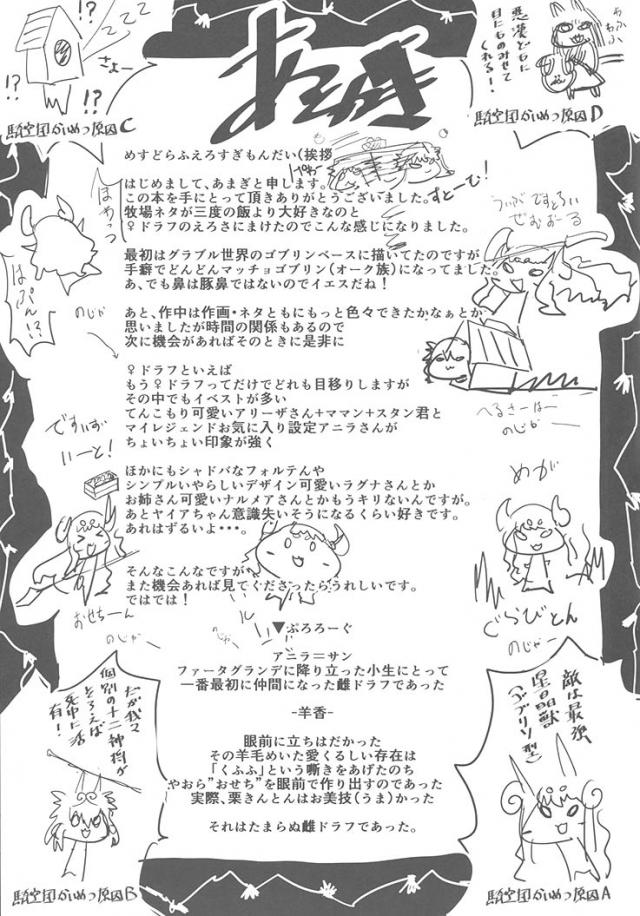 あとがき
めすどらふえろすぎもんだい(挨拶
はじめまして、あまぎと申します。
この本を手にとって頂きありがとうございました。
牧場ネタが三度の飯より大好きなのと
♀ドラフのえろさにまけたのでこんな感じになりました。
最初はグラブル世界のゴブリンベースに描いてたのですが
手癖でどんどんマッチョゴブリン(オーク族)になってました。
あ、でも鼻は豚鼻ではないのでイエスだね!
あと、作中は作画・ネタともにもっと色々できたかなぁとか
思いましたが時間の関係もあるので
次に機会があればそのときに是非に
♀ドラフといえば
もう♀ドラフってだけでどれも目移りしますが
その中でもイベストが多い
てんこもり可愛いアリーザさん+ママン+スタン君と
マイレジェンドお気に入り設定アニラさんが
ちょいちょい印象が強く
ほかにもシャドバなフォルテんや
シンプルいやらしいデザイン可愛いラグナさんとか
お姉さん可愛いナルメアさんとかもうキリないんですが。
あとヤイアちゃん意識失いそうになるくらい好きです。
あれはずるいよ・・・。
そんなこんなですが
また機会あれば見てくださったらうれしいです。
ではでは!
▼ぷろろーぐ
アニラ=サン
ファータグランデに降り立った小生にとって
一番最初に仲間になった雌ドラフであった
-羊香-
眼前に立ちはだかった
その羊毛めいた愛くるしい存在は
「くふふ」という嘶きをあげたのち
やおら"おせち"を眼前で作り出すのであった
実際、栗きんとんはお美技(うま)かった
それはたまらぬ雌ドラフであった。
!?
!?
さよー
騎空団かいめつ原因C
悪漢どもに
目にものみせて
くれる!
騎空団かいめつ原因D
すとーぷ!
はぷん!?
のじゃ
うぃがですとろい
ぜむおーる
へるさーはー
のじゃー
ですいず
いーと!
おせちーん
のじゃ
めが
ぐらびとん
のじゃー
だが我々
個別の十二神将が
そろえば
死中に活
有!
騎空団かいめつ原因B
敵は最強
星晶獣
(アプリリソ型)
騎空団かいめつ原因A